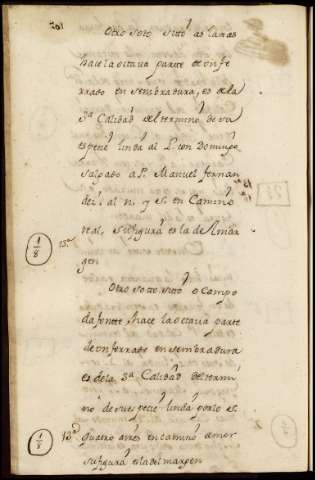 Otro soto sitio as lamas
hace la octava parte de un fe
rrado en sembradura, es de la
3ª Calidad del termino de su
espeçie linda al L. con Domingo
Salgado a P. Manuel fernan
dez. al n. y s. en Camino
real, su figura es la de el mar
gen
1/8
Otro sotto sitio o Campo
da fontte hace la octava parte
de un ferrado en sembradura
es de la 3ª Calidad del termi
no de su espeçie linda por los
quatro aires en camino
su figura es la del marxen
1/8